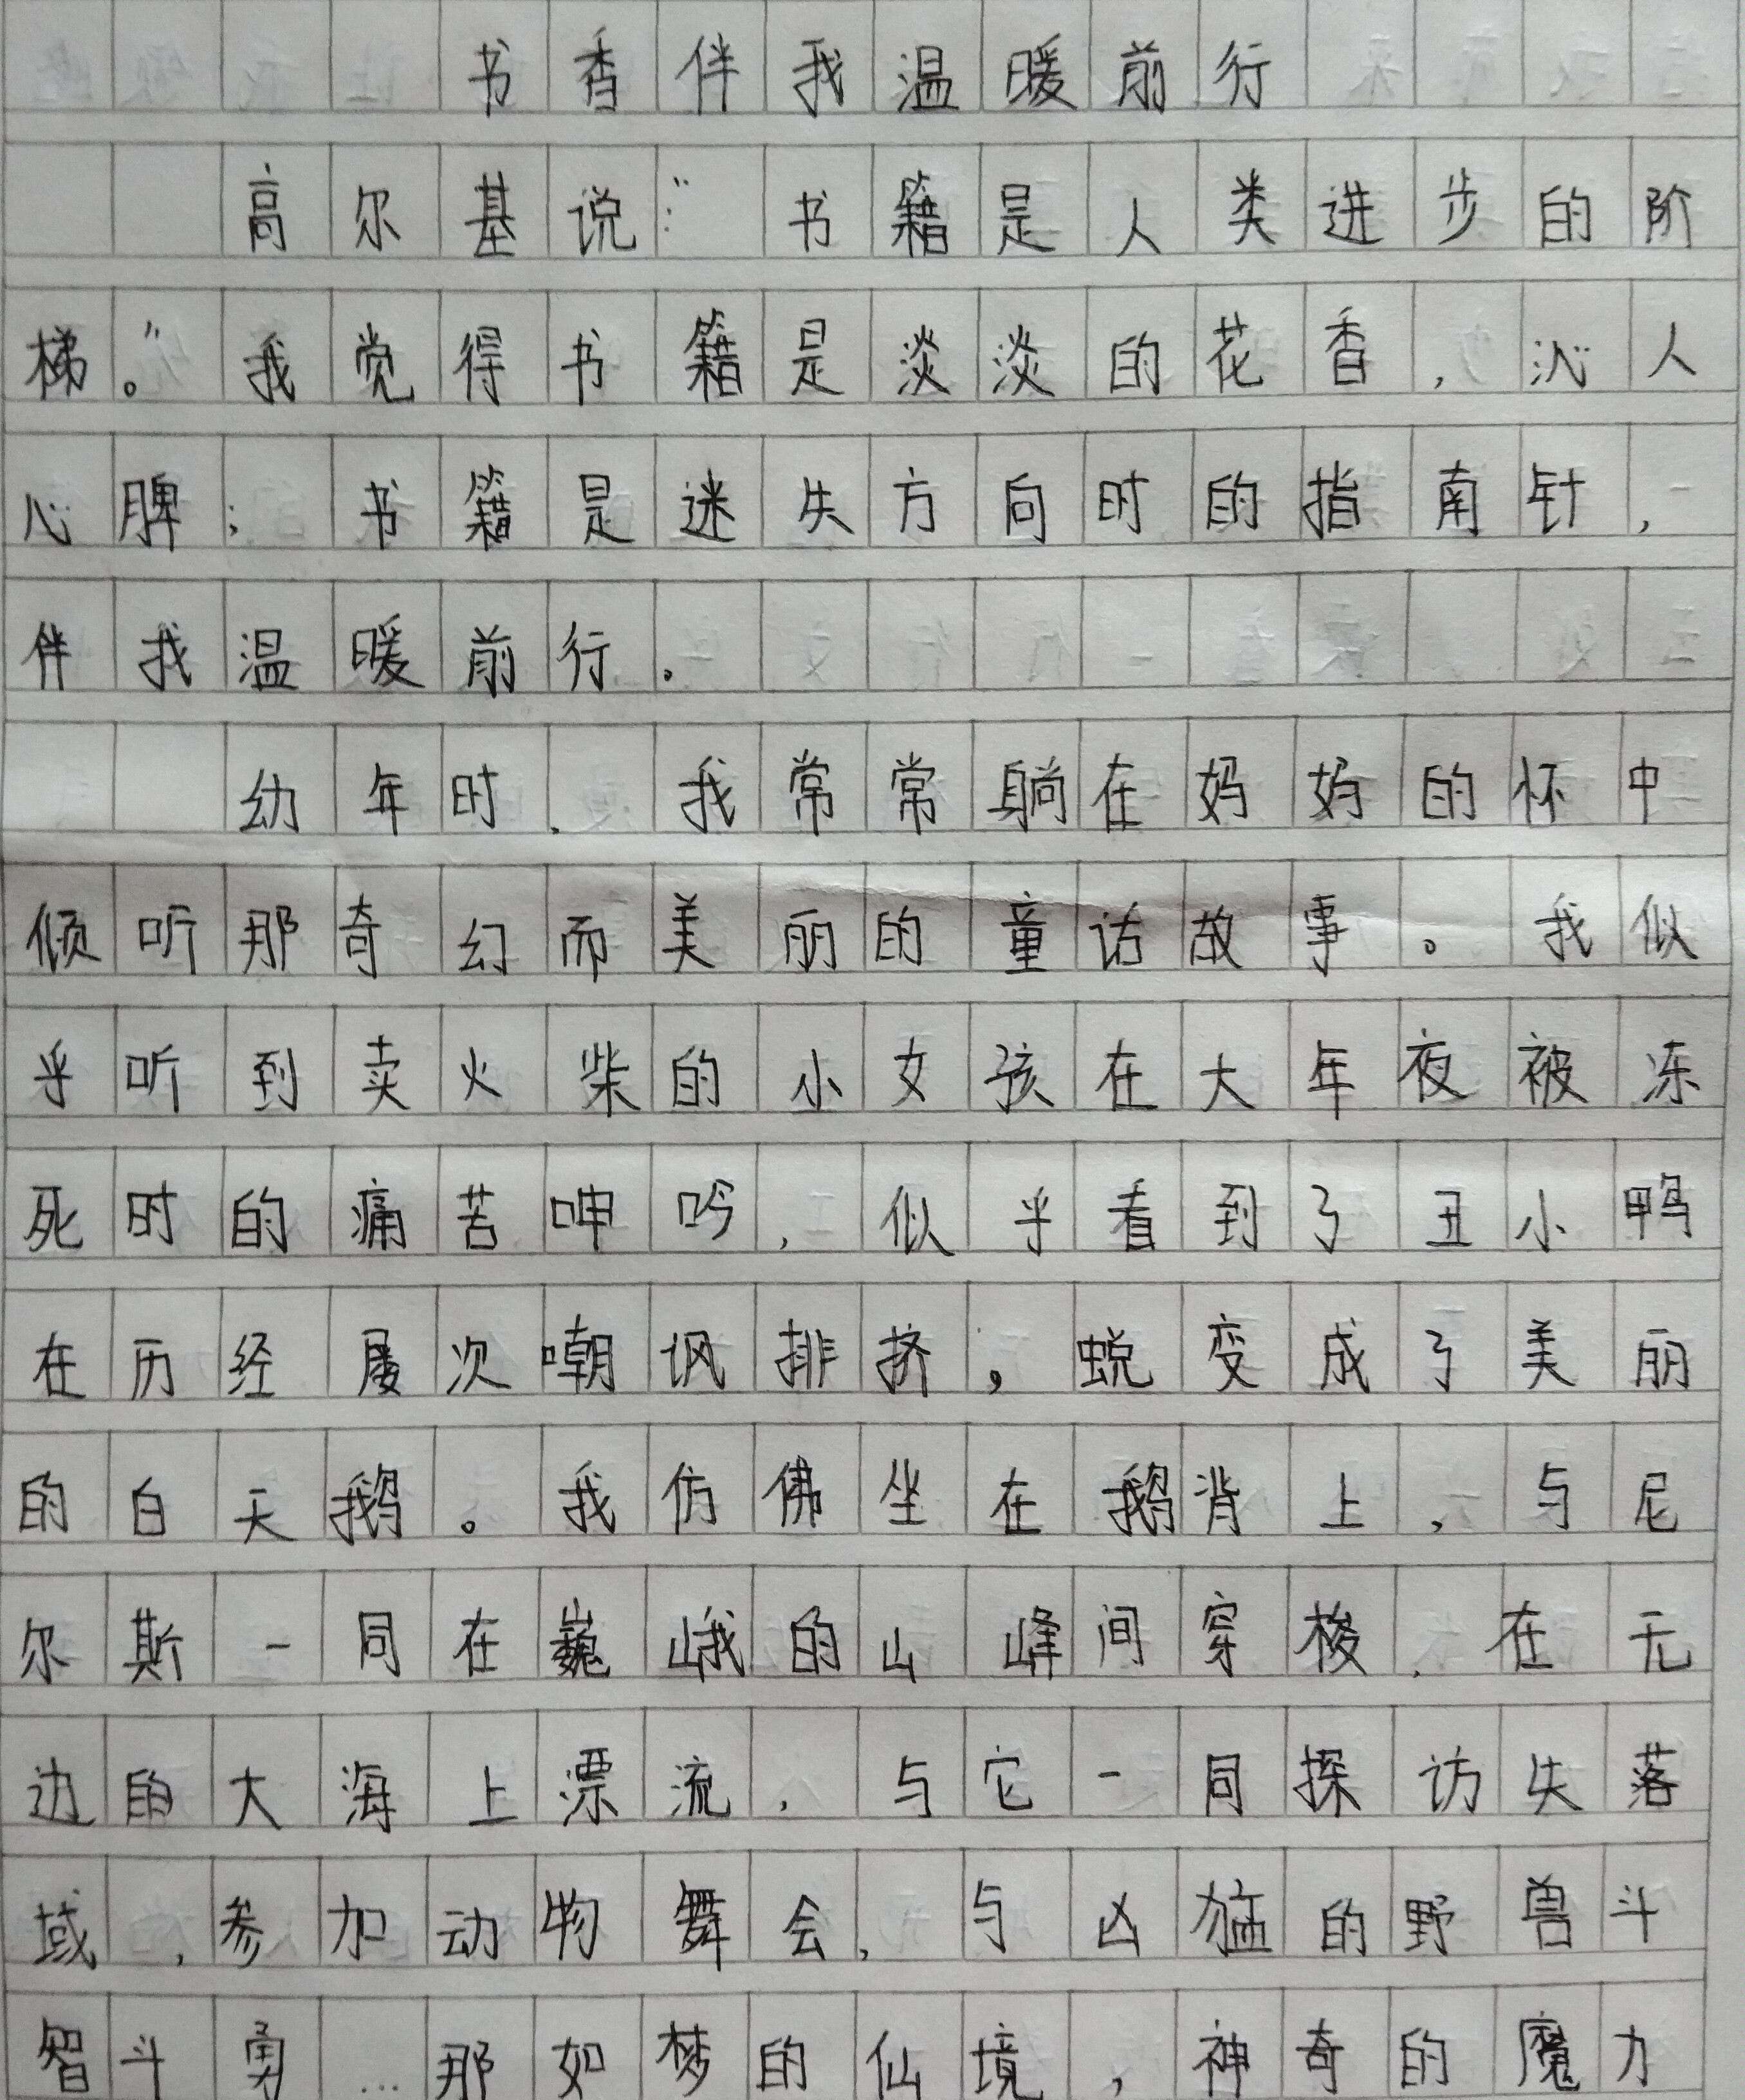 书香伴我温暖前行
高尔基说:“书籍是人类进步的阶
梯。”我觉得书籍是淡淡的花香,沁人
心脾;书籍是迷失方向时的指南针,
伴我温暖前行。
幼年时,我常常躺在妈妈的怀中
倾听那奇幻而美丽的童话故事。我似
乎听到卖火柴的小女孩在大年夜被冻
死时的痛苦呻吟,似乎看到了丑小鸭
在历经屡次嘲讽排挤,蜕变成了美丽
的白天鹅。我仿佛坐在鹅背上,与尼
尔斯一同在巍峨的山峰间穿梭,在无
边的大海上漂流,与它一同探访失落
域,参加动物舞会,与凶猛的野兽斗
智斗勇…那如梦的仙境,神奇的魔力